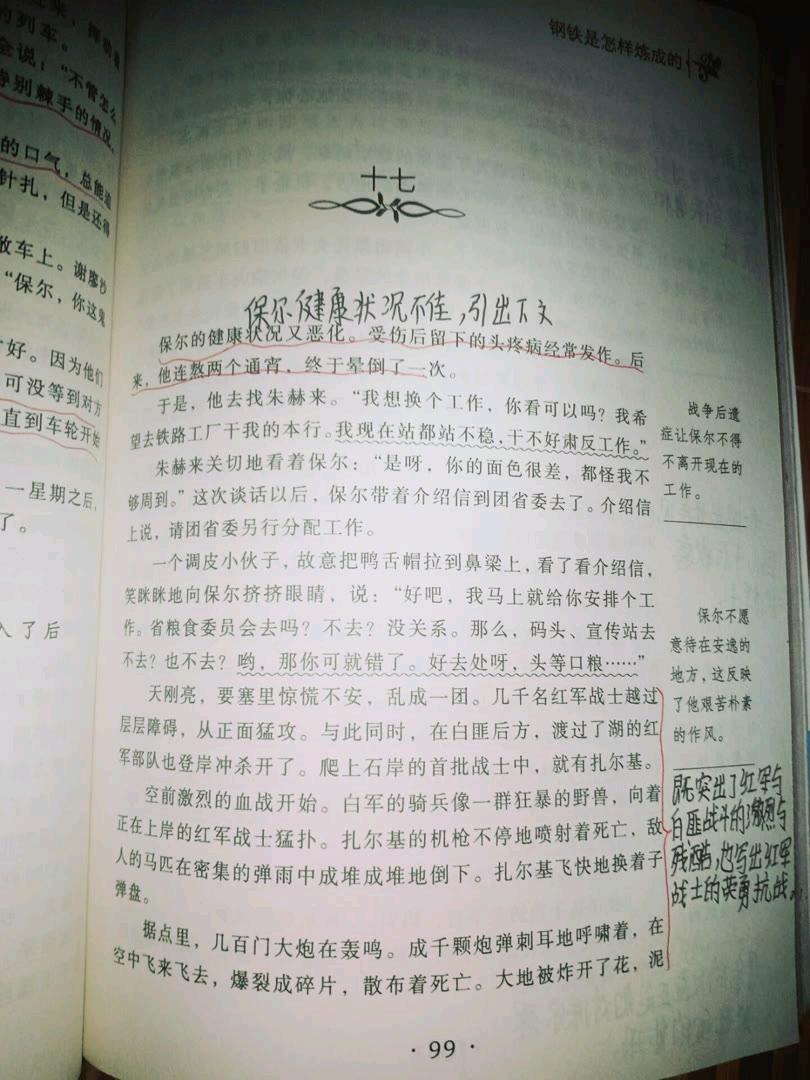 的列车。
会说：“不管怎么
特别棘手的情况，
的口气，总能追
针扎，但是还得
敌车上。谢廖沙
“保尔，你这鬼
好。因为他们
可没等到对方
直到车轮开始
一星期之后，
了。
入了后
钢铁是怎样炼成的
十七
保尔健康状况不佳，引出下文
保尔的健康状况又恶化。受伤后留下的头疼病经常发作。后
来，他连熬两个通宵，终于晕倒了一次。
于是，他去找朱赫来。“我想换个工作，你看可以吗？我希
望去铁路工厂干我的本行。我现在站都站不稳，干不好肃反工作。”
朱赫来关切地看着保尔：“是呀，你的面色很差，都怪我不
够周到。”这次谈话以后，保尔带着介绍信到团省委去了。介绍信
上说，请团省委另行分配工作。
一个调皮小伙子，故意把鸭舌帽拉到鼻梁上，看了看介绍信，
笑眯眯地向保尔挤挤眼睛，说：“好吧，我马上就给你安排个工
作。省粮食委员会去吗？不去？没关系。那么，码头、宣传站去
不去？也不去？哟，那你可就错了。好去处呀，头等口粮……”
天刚亮，要塞里惊慌不安，乱成一团。几千名红军战士越过
层层障碍，从正面猛攻。与此同时，在白匪后方，渡过了湖的红
军部队也登岸冲杀开了。爬上石岸的首批战士中，就有扎尔基。
空前激烈的血战开始。白军的骑兵像一群狂暴的野兽，向着
正在上岸的红军战士猛扑。扎尔基的机枪不停地喷射着死亡，敌
人的马匹在密集的弹雨中成堆成堆地倒下。扎尔基飞快地换着子
弹盘。
据点里，几百门大炮在轰鸣。成千颗炮弹刺耳地呼啸着，在
空中飞来飞去，爆裂成碎片，散布着死亡。大地被炸开了花，泥
战争后遗
症让保尔不得
不离开现在的
工作。
保尔不愿
意待在安逸的
地方，这反映
了他艰苦朴素
的作风。
既突出了红军与
白匪战斗的激烈与
残酷，也写出红军
战士的英勇抗战。
·99·